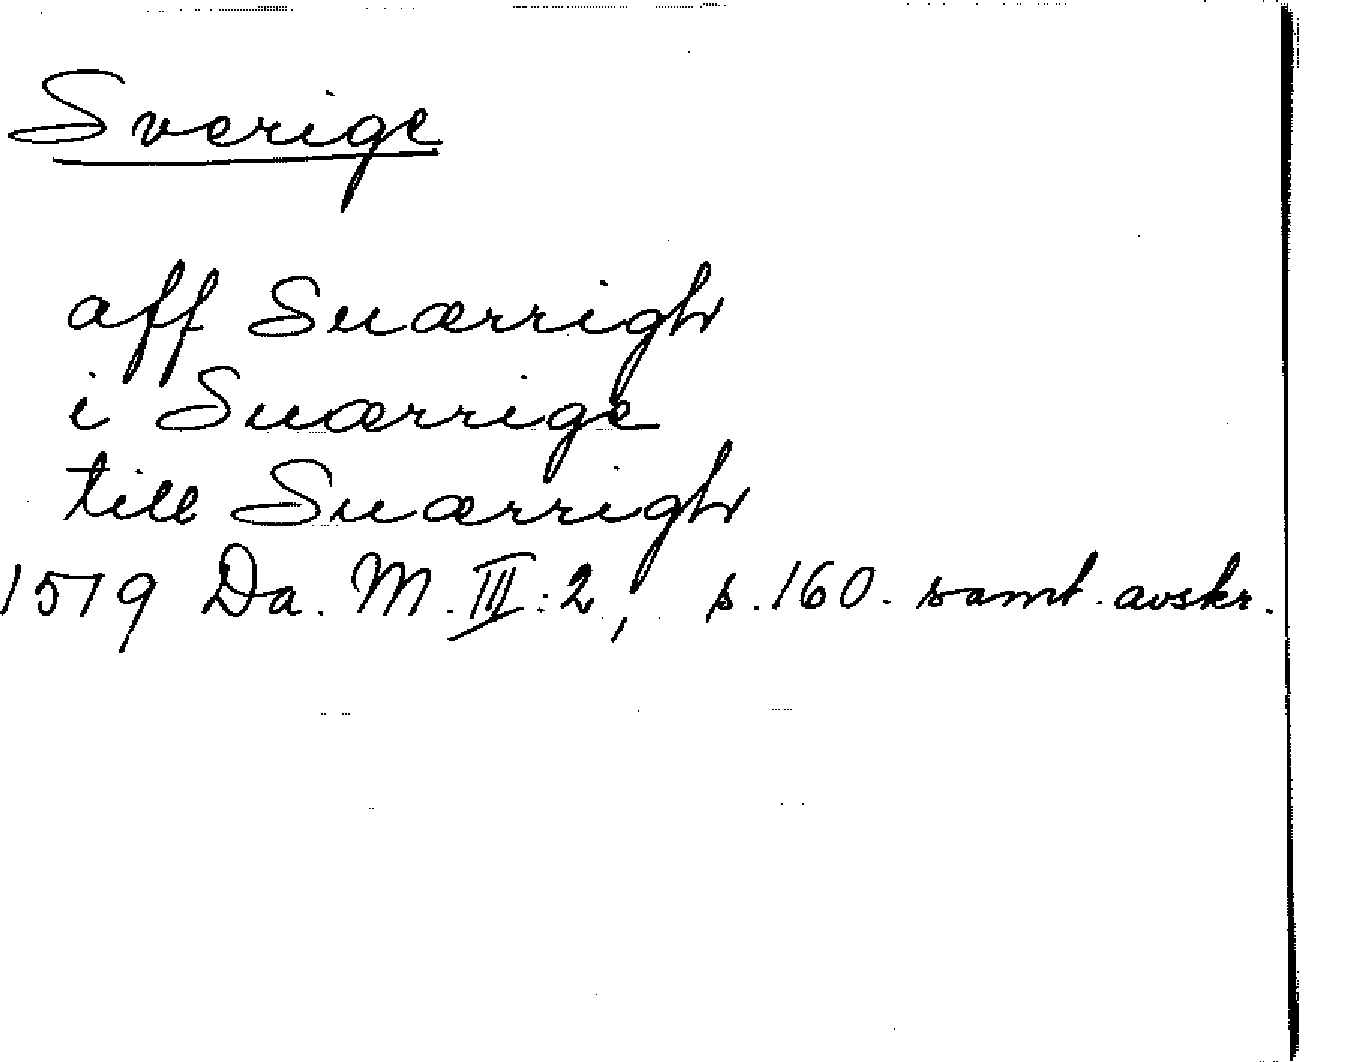 Sverige
aff Suærrigh
i Suærrige
till Suærrigh
1579 Da. M. III:2, s. 160. samt avskr.